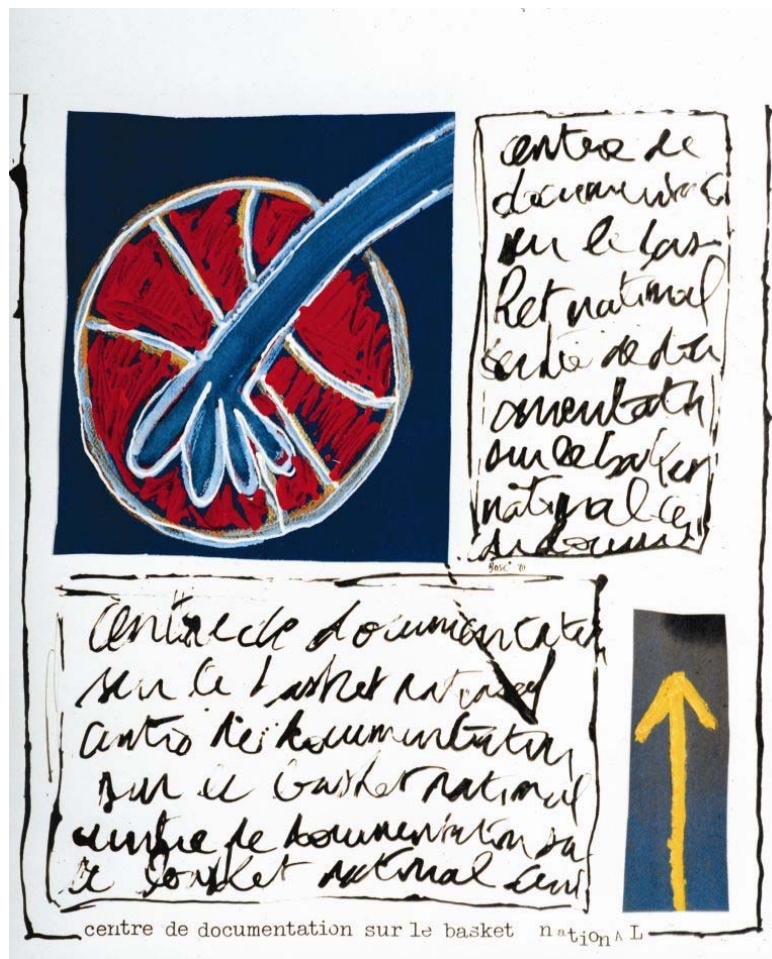 centre de
documentati
sur le bas
ket national
centre de docu
mentation
sur le basket
national ce
centre de documentation
sur le basket national
centre de documentation
sur le basket national
centre de documentation su
le basket national cent
centre de documentation sur le basket nationAL